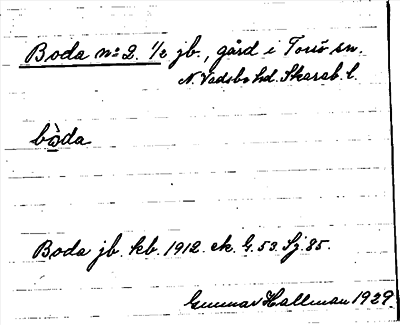 Boda n:o 2. 1/2 jb., gård i Torsö sn.
N. Vadsbo hd. Skarab. l.
bòda
Boda jb. kb. 1912. ek. G. 53. Sj. 85.
Gunnar Hallman 1929.